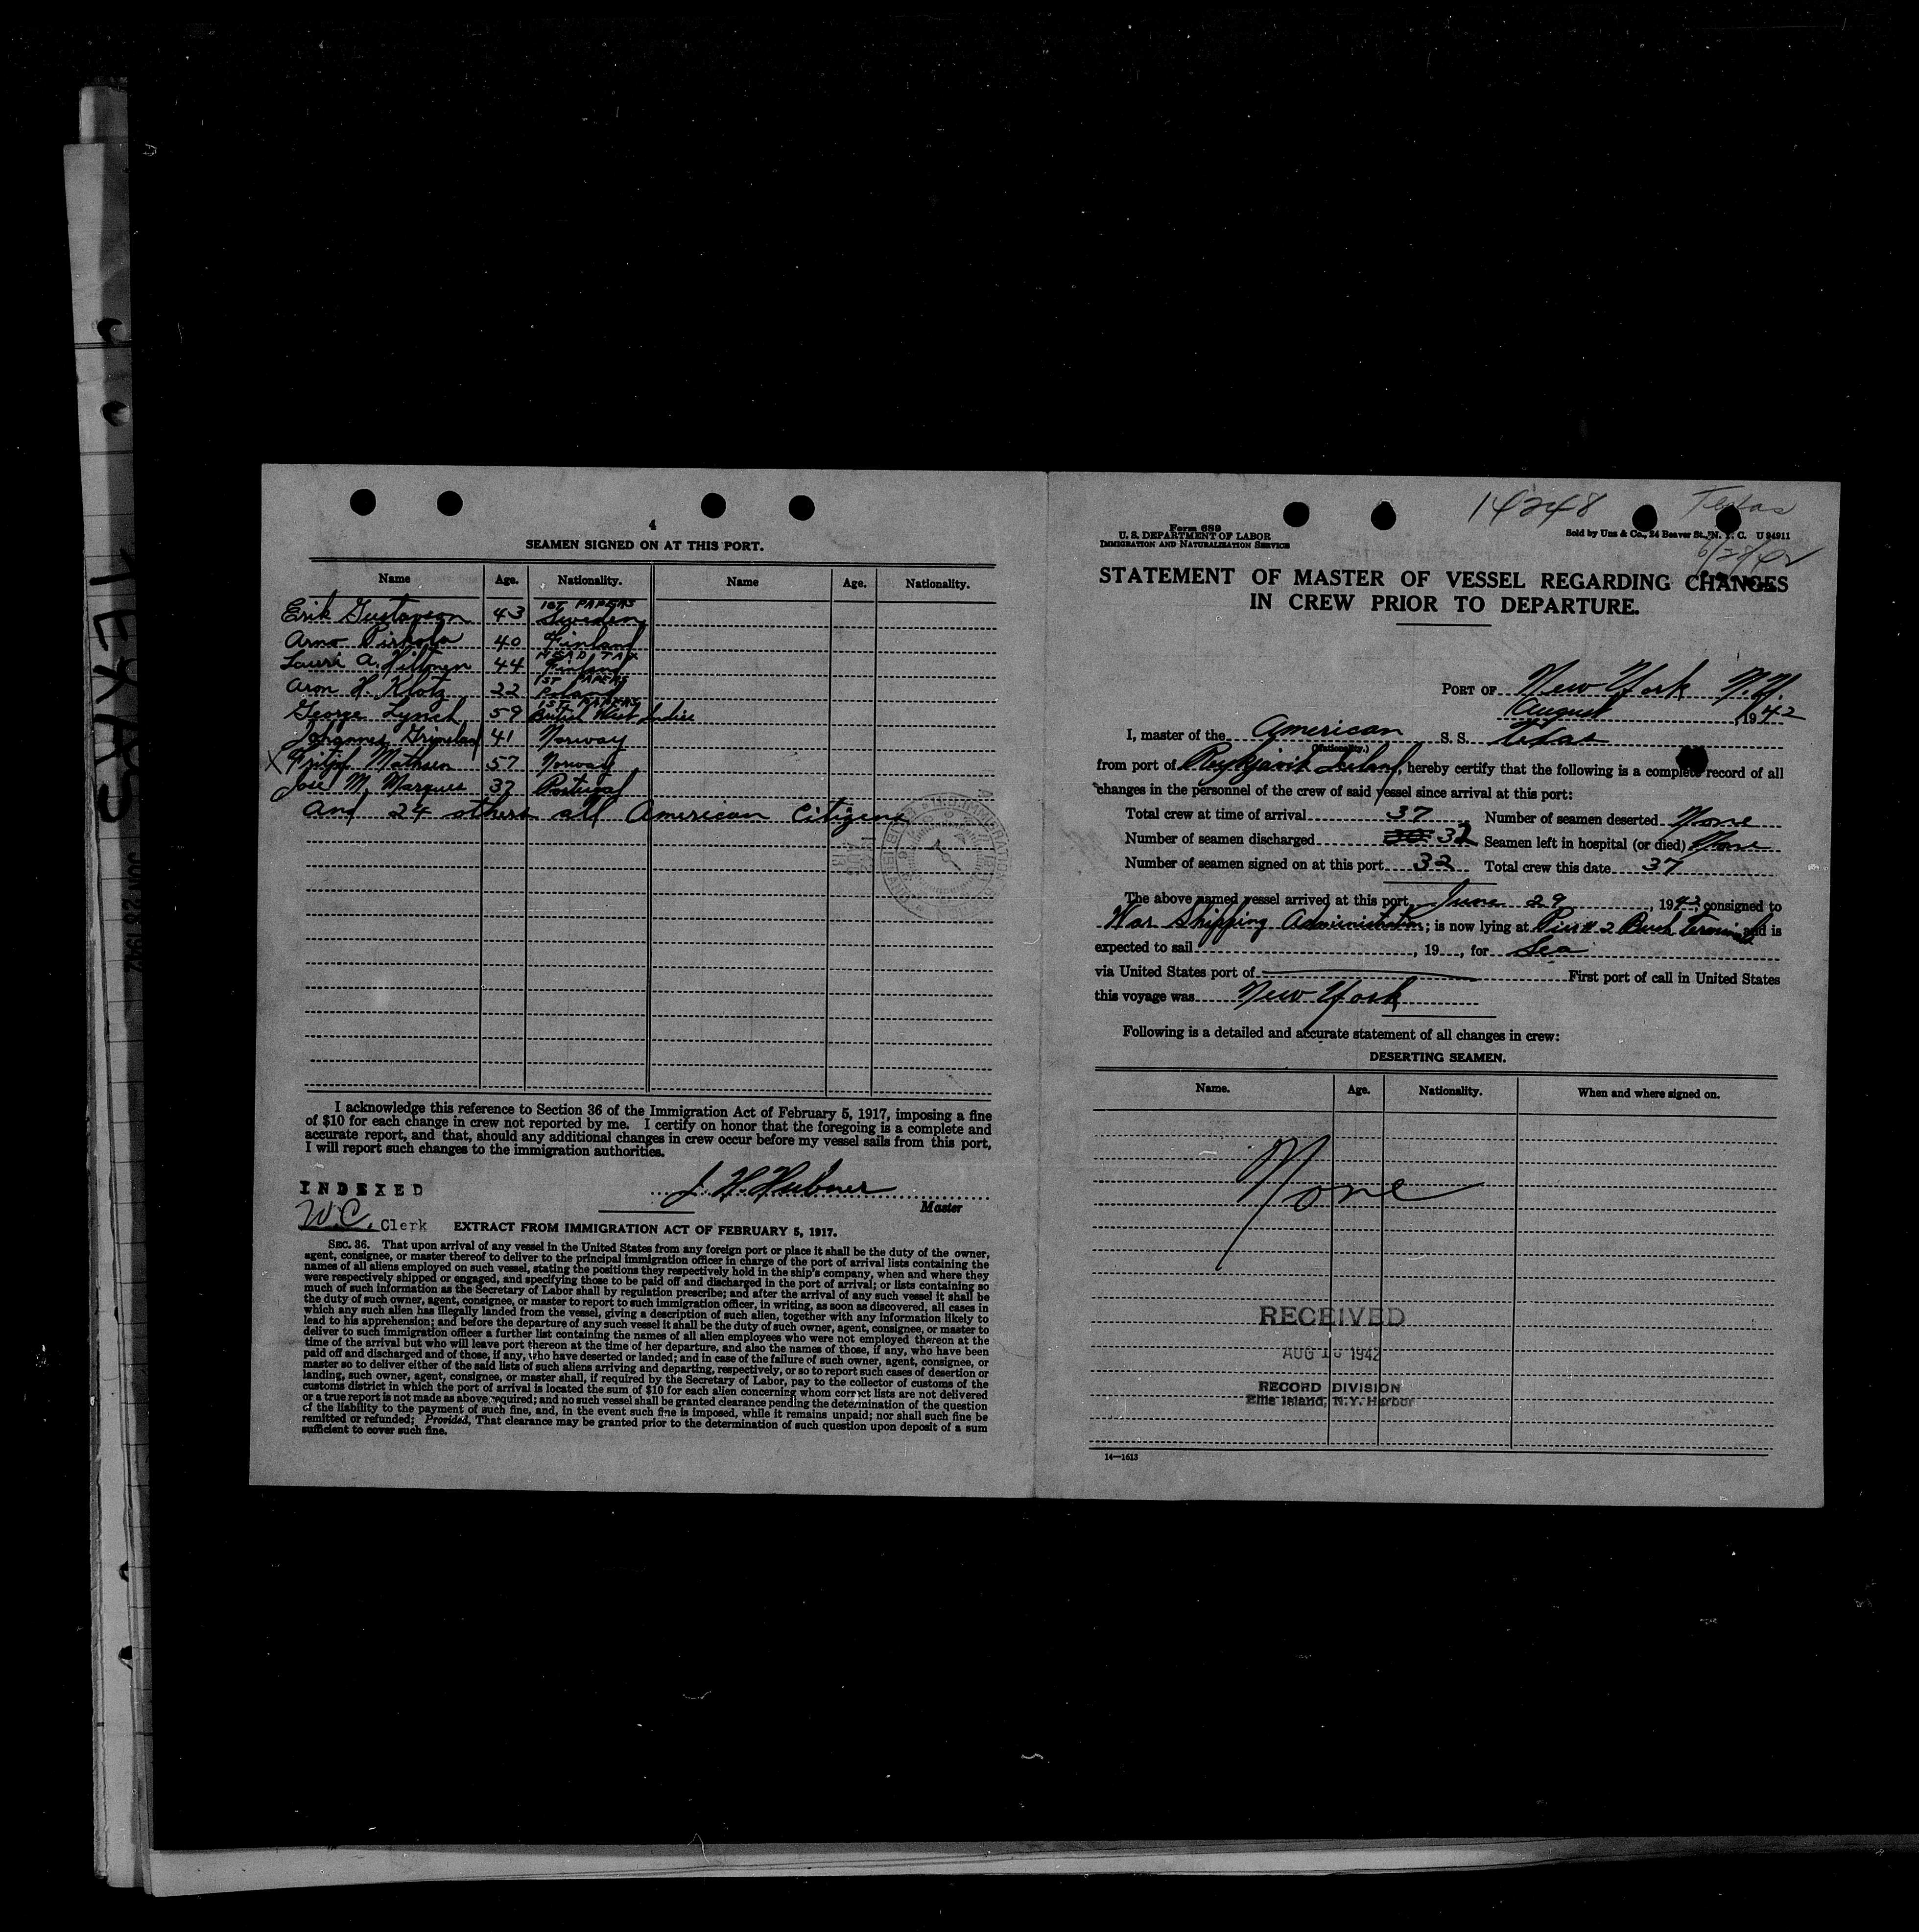 TEXAS
JUN 28 1942
4
SEAMEN SIGNED ON AT THIS PORT.
Name Age. Nationality. Name Age. Nationality.
1ST PAPERS
Erik Gustavson 43 Sweden
Arno Pirkola 40 Finland
HEAD TAX
Lauri A. 44 Finland
1ST PAPERS
Aron H. Klotz 22 Poland
1ST PAPERS
George Lynch 59 British West Indies
Johannes 41 Norway
X Fritjof Mathsen 57 Norway
Jose M. Marques 37 Portugal
and 24 others all American Citizens
I acknowledge this reference to Section 36 of the Immigration Act of February 5, 1917, imposing a fine
of $10 for each change in crew not reported by me. I certify on honor that the foregoing is a complete and
accurate report, and that, should any additional changes in crew occur before my vessel sails from this port,
I will report such changes to the immigration authorities.
INDEXED
J. H. Hubner
Master
W.C. Clerk
EXTRACT FROM IMMIGRATION ACT OF FEBRUARY 5, 1917.
SEC. 36. That upon arrival of any vessel in the United States from any foreign port or place it shall be the duty of the owner,
agent, consignee, or master thereof to deliver to the principal immigration officer in charge of the port of arrival lists containing the
names of all aliens employed on such vessel, stating the positions they respectively hold in the ship's company, when and where they
were respectively shipped or engaged, and specifying those to be paid off and discharged in the port of arrival; or lists containing so
much of such information as the Secretary of Labor shall by regulation prescribe; and after the arrival of any such vessel it shall be
the duty of such owner, agent, consignee, or master to report to such immigration officer, in writing, as soon as discovered, all cases in
which any such alien has illegally landed from the vessel, giving a description of such alien, together with any information likely to
lead to his apprehension; and before the departure of any such vessel it shall be the duty of such owner, agent, consignee, or master to
deliver to such immigration officer a further list containing the names of all alien employees who were not employed thereon at the
time of the arrival but who will leave port thereon at the time of her departure, and also the names of those, if any, who have been
paid off and discharged and of those, if any, who have deserted or landed; and in case of the failure of such owner, agent, consignee, or
master so to deliver either of the said lists of such aliens arriving and departing, respectively, or so to report such cases of desertion or
landing, such owner, agent, consignee, or master shall, if required by the Secretary of Labor, pay to the collector of customs of the
customs district in which the port of arrival is located the sum of $10 for each alien concerning whom correct lists are not delivered
or a true report is not made as above required; and no such vessel shall be granted clearance pending the determination of the question
of the liability to the payment of such fine, and, in the event such fine is imposed, while it remains unpaid; nor shall such fine be
remitted or refunded; Provided, That clearance may be granted prior to the determination of such question upon deposit of a sum
sufficient to cover such fine.
14248 Texas
Form 689
U. S. DEPARTMENT OF LABOR
IMMIGRATION AND NATURALIZATION SERVICE
Sold by Unz & Co., 24 Beaver St., N. Y. C. U 94911
6/28/42
STATEMENT OF MASTER OF VESSEL REGARDING CHANGES
IN CREW PRIOR TO DEPARTURE.
PORT OF New York N.Y.
August , 1942
I, master of the American S. S. Texas
(Nationality.)
from port of Reykjavik Iceland, hereby certify that the following is a complete record of all
changes in the personnel of the crew of said vessel since arrival at this port:
Total crew at time of arrival 37 Number of seamen deserted None
Number of seamen discharged 30 32 Seamen left in hospital (or died) None
Number of seamen signed on at this port 32 Total crew this date 37
The above named vessel arrived at this port June 29, 1942, consigned to
War Shipping Administration; is now lying at Pier # 2 Bush Terminal and is
expected to sail , 19 , for Sea
via United States port of First port of call in United States
this voyage was New York
Following is a detailed and accurate statement of all changes in crew:
DESERTING SEAMEN.
Name. Age. Nationality. When and where signed on.
None
RECEIVED
AUG 10 1942
RECORD DIVISION
Ellis Island, N.Y. Harbor
14—1613